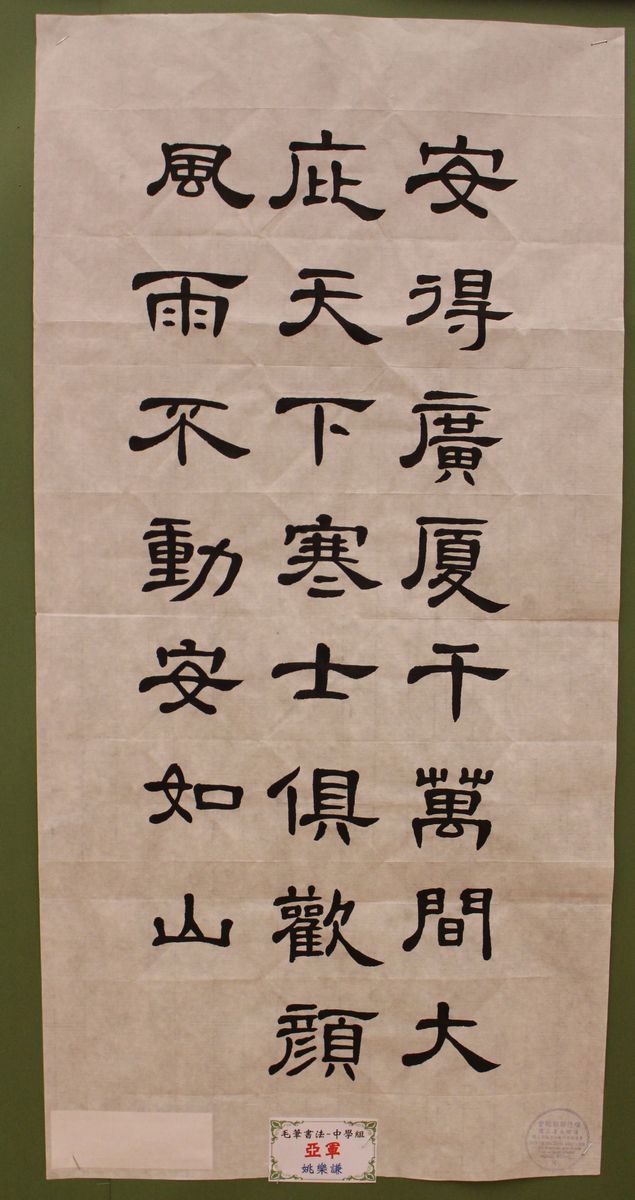 安得廣厦千萬間大
庇天下寒士俱歡顔
風雨不動安如山
毛筆書法-中學組
亞軍
姚樂謙